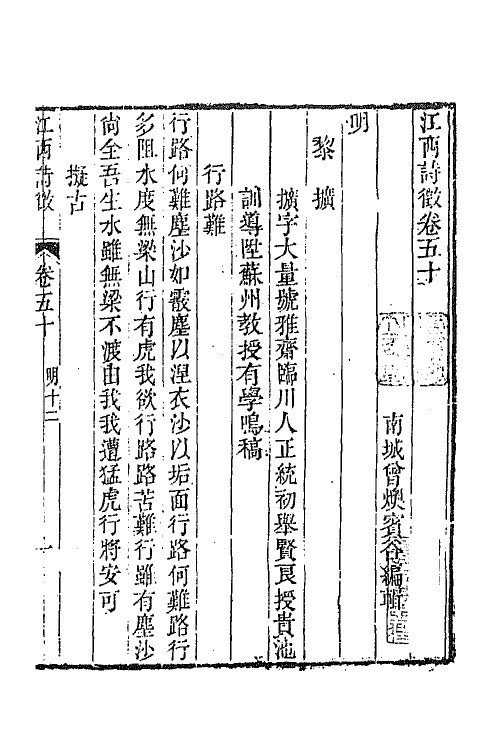 江西詩徵卷五十
南城曾燠賓谷編輯
明
黎擴
擴字大量號雅齋臨川人正統初舉賢良授貴池
訓導陞蘇州教授有學鳴稿
行路難
行路何難塵沙如霰塵以涅衣沙以垢面行路何難路行
多阻水度無梁山行有虎我欲行路路苦難行雖有塵沙
尚全吾生水雖無梁不渡由我我遭猛虎行將安可
擬古
江西詩徵
卷五十
明十二
一